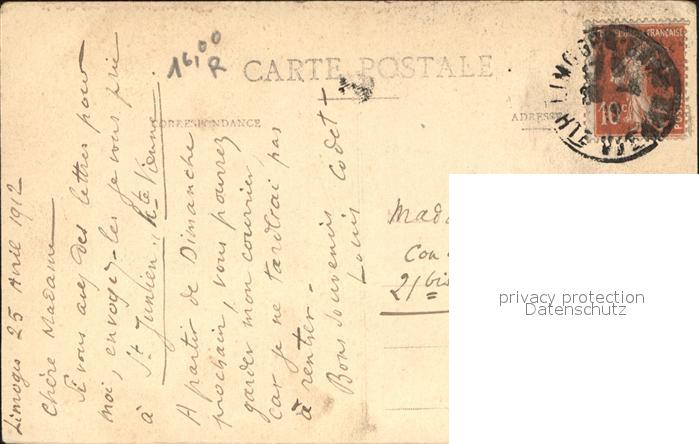 16,00
R
CARTE POSTALE
CORRESPONDANCE
ADRESSE
Limoges 25 Avril 1912
Chère Madame
Si vous avez des lettres pour
moi, envoyez-les je vous prie
à St Junien, Hte Vienne.
A partir de Dimanche
prochain, vous pourrez
garder mon courrier
car je ne tarderai pas
à rentrer -
Bons souvenirs
Louis Codet
Mada
Con
21 bis
FRANÇAISE
10c
POSTES
LIMOGES
HTE VIENNE
privacy protection
Datenschutz